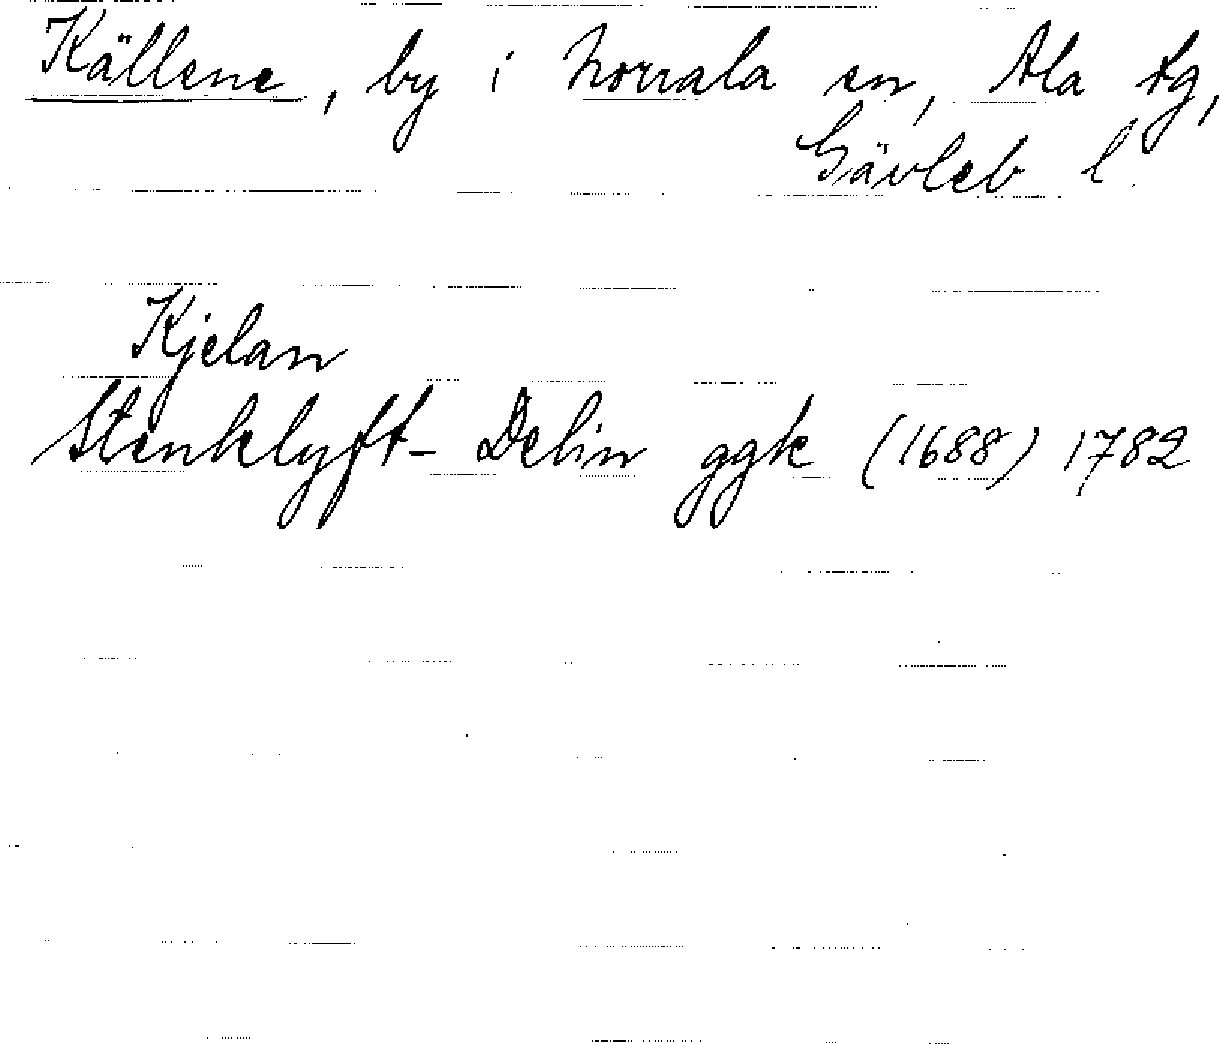 Källene, by i Norrala sn, Ala tg,
Gävleb l.
Kjelan
Stenklyft- Delin ggk (1688) 1782